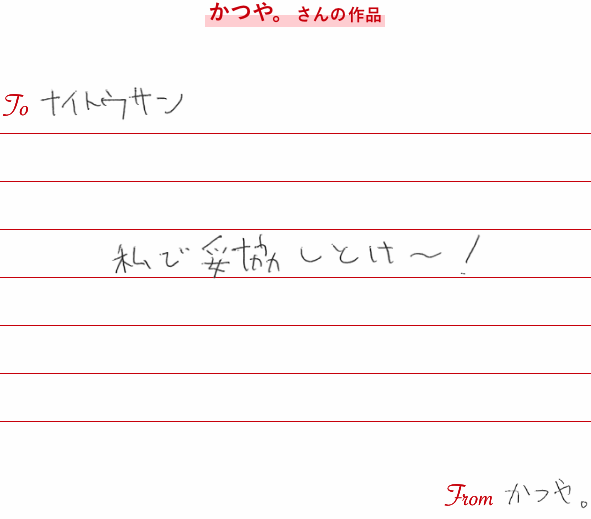 かつや。さんの作品
To ナイトウサン
私で妥協しとけ〜！
From かつや。